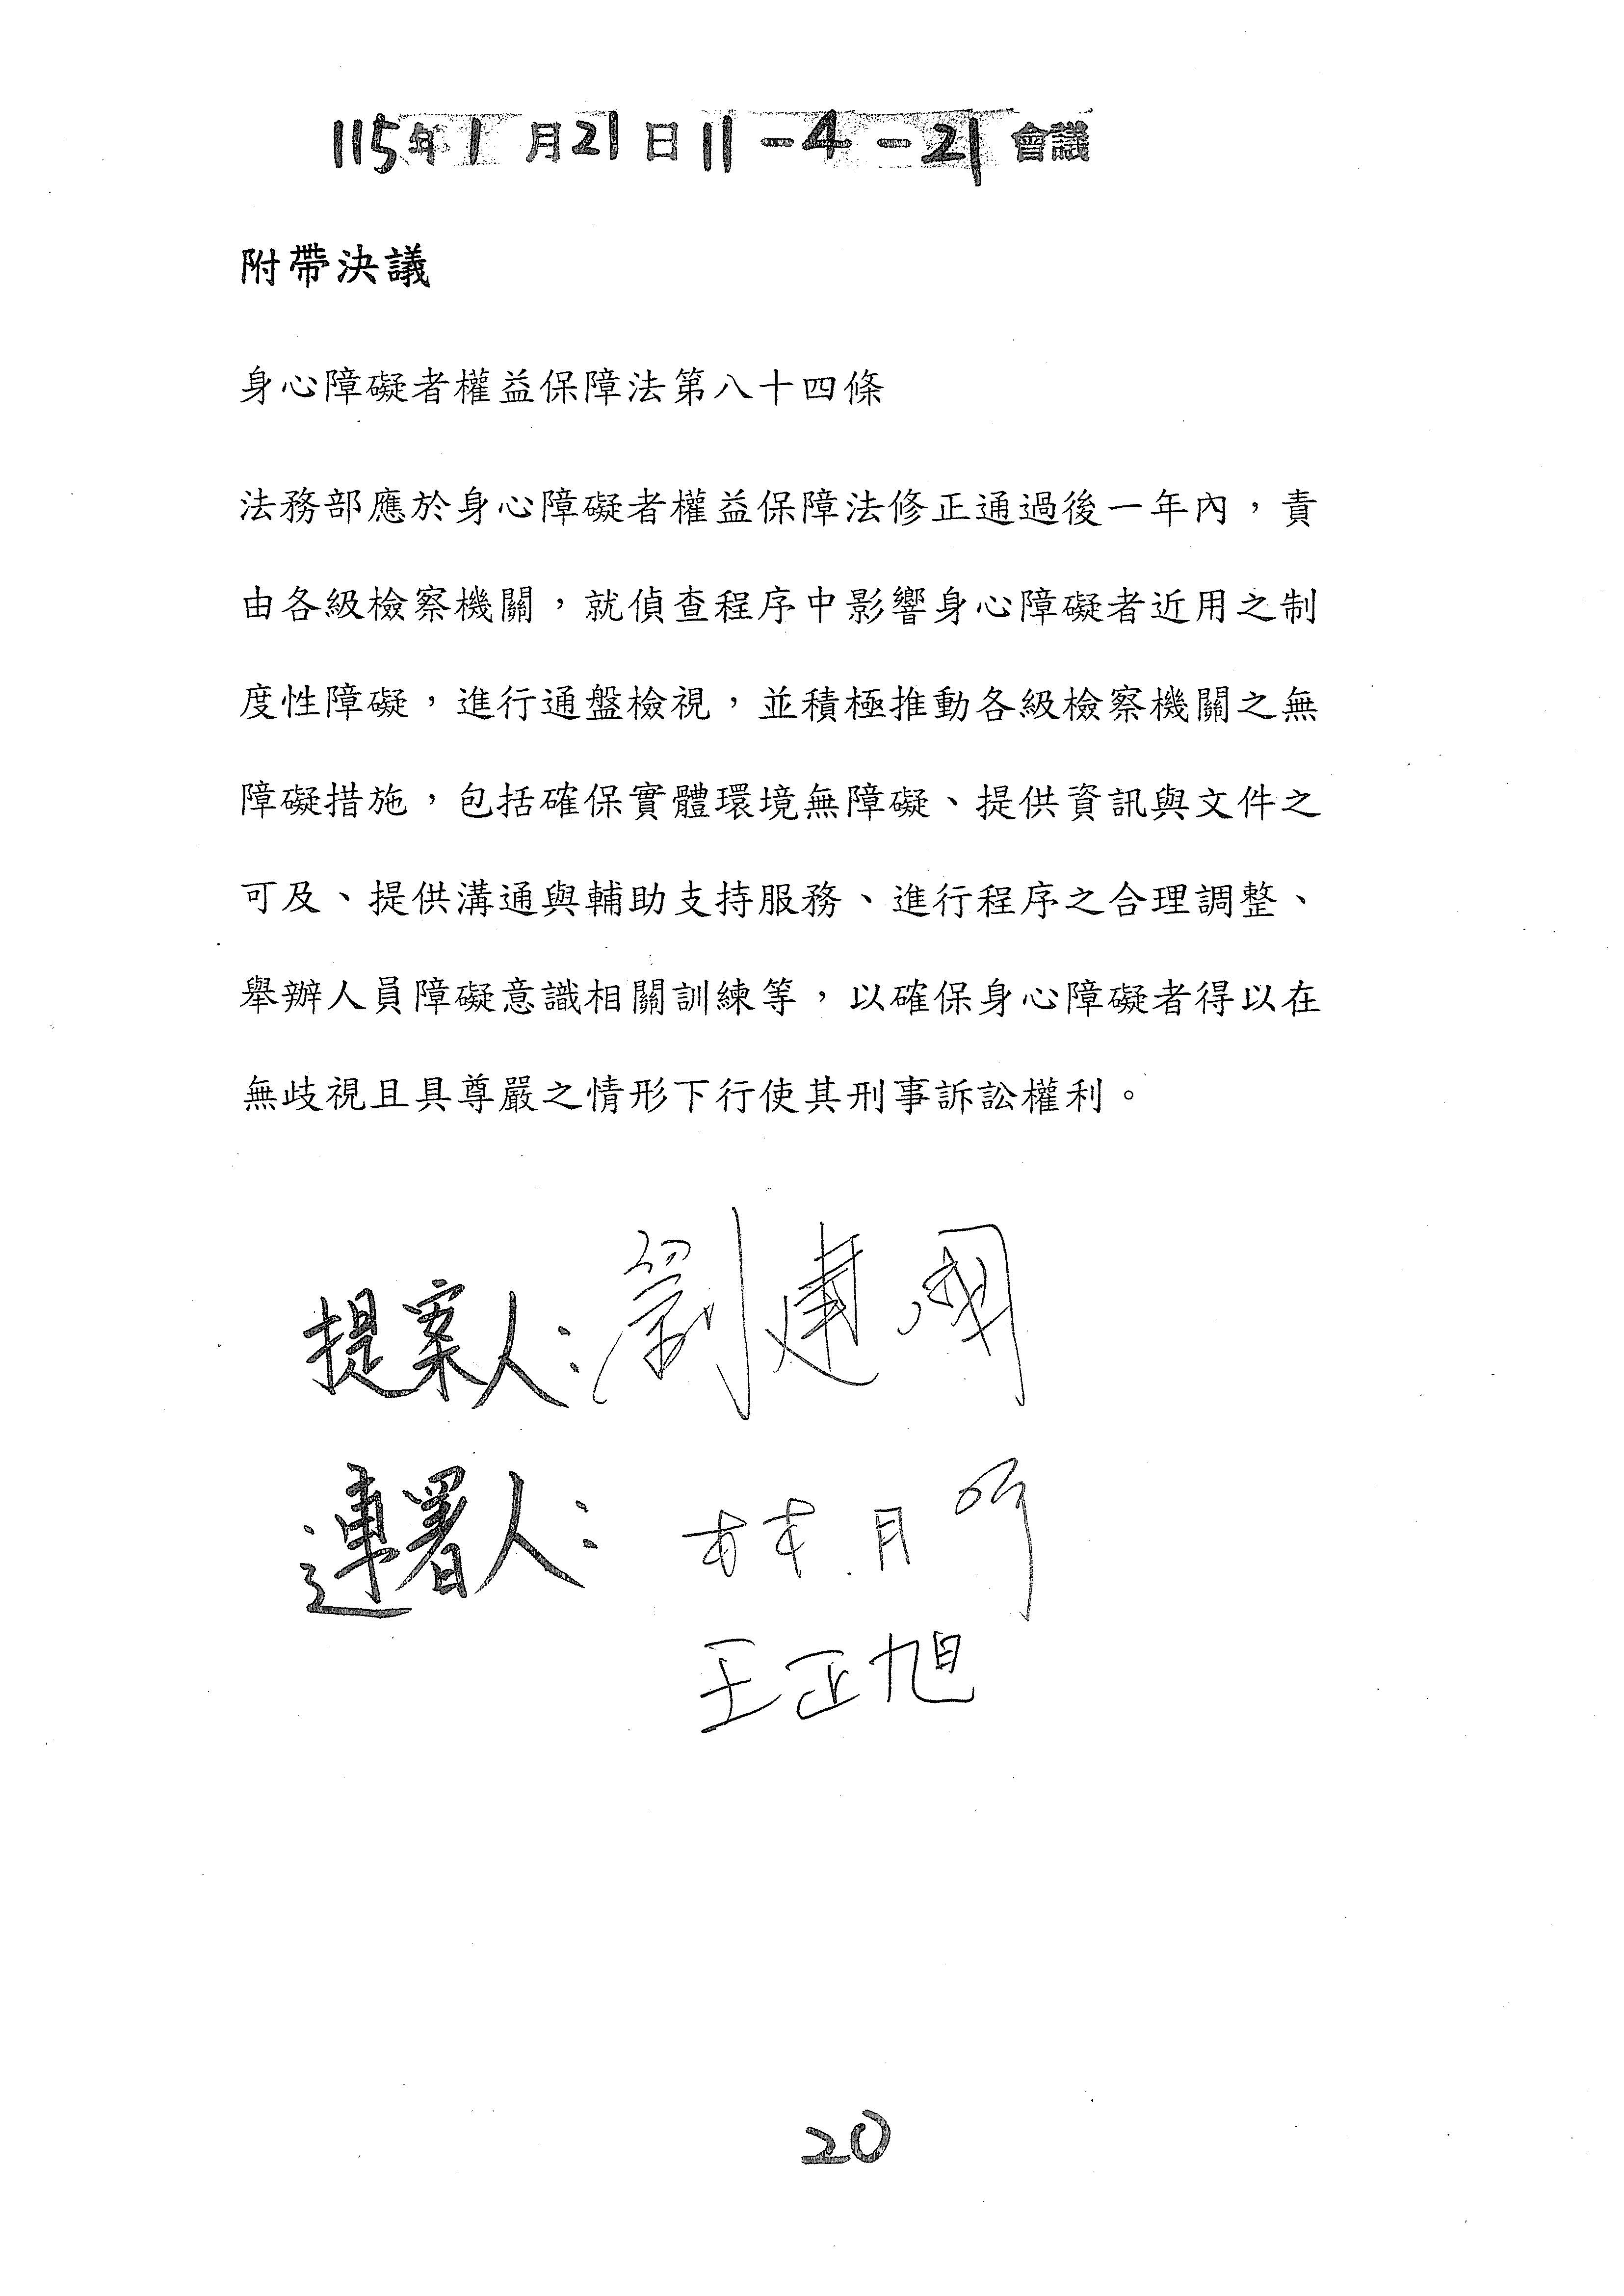 115年1月21日11-4-21會議
附帶決議
身心障礙者權益保障法第八十四條
法務部應於身心障礙者權益保障法修正通過後一年內，責
由各級檢察機關，就偵查程序中影響身心障礙者近用之制
度性障礙，進行通盤檢視，並積極推動各級檢察機關之無
障礙措施，包括確保實體環境無障礙、提供資訊與文件之
可及、提供溝通與輔助支持服務、進行程序之合理調整、
舉辦人員障礙意識相關訓練等，以確保身心障礙者得以在
無歧視且具尊嚴之情形下行使其刑事訴訟權利。
提案人：劉建國
連署人：林月
王正旭
20